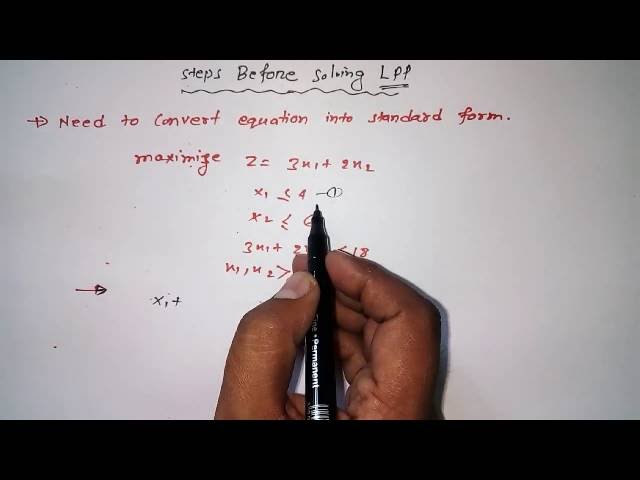 Steps Before solving LPP
→ Need to convert equation into standard form.
maximize Z= 3x₁+ 2x₂
x₁ ≤ 4 –①
x₂ ≤
3x₁+ 2 ≤ 18
x₁, x₂ >
→ x₁+
Fine • Permanent